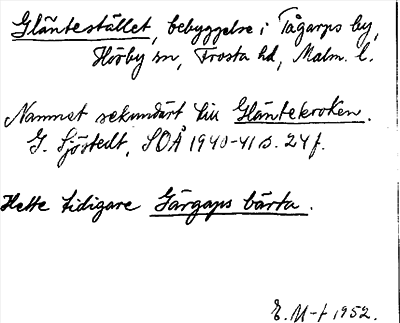 Gläntestället, bebyggelse i Tågarps by,
Hörby sn, Frosta hd, Malm. l.
Namnet sekundärt till Gläntekroken.
G. Sjöstedt, SOÅ 1940-41 s. 24 f.
Hette tidigare Gärgaps bärta.
E. M-f 1952.